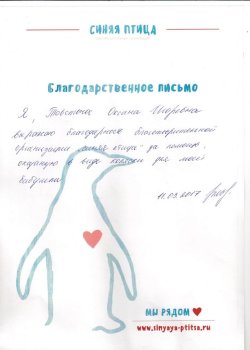 СИНЯЯ ПТИЦА
Благодарственное письмо
Я, Толстых Оксана Игоревна
выражаю благодарность благотворительной
организации "синяя птица" за помощь,
оказаную в виде коляски для моей
бабушки.
11.09.2017
МЫ РЯДОМ
www.sinyaya-ptitsa.ru